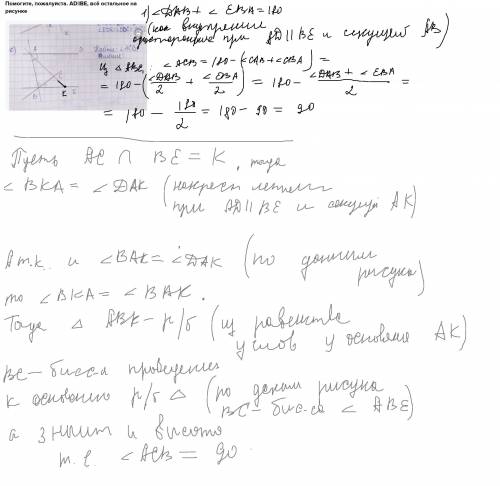 Помогите, пожалуйста. AD||BE, всё остальное на
рисунке
1) ∠DAB + ∠EBA = 180
(как внутренние
односторонние при AD || BE и секущей AB)
Из △ABC: ∠ACB = 180 - (∠CAB + ∠CBA) =
= 180 - (∠DAB/2 + ∠EBA/2) = 180 - (∠DAB + ∠EBA)/2 =
= 180 - 180/2 = 180 - 90 = 90
Пусть AC ∩ BE = K, тогда
∠BKA = ∠DAK (накрест лежащие
при AD || BE и секущей AK)
А т.к. и ∠BAK = ∠DAK (по данным
рисунка)
то ∠BKA = ∠BAK.
Тогда △ABK - р/б (из равенства
углов у основания AK)
BC - бисс-а проведенная
к основанию р/б △ (по даным рисунка
BC - бис-са ∠ABE)
а значит и высота
т.е ∠ACB = 90